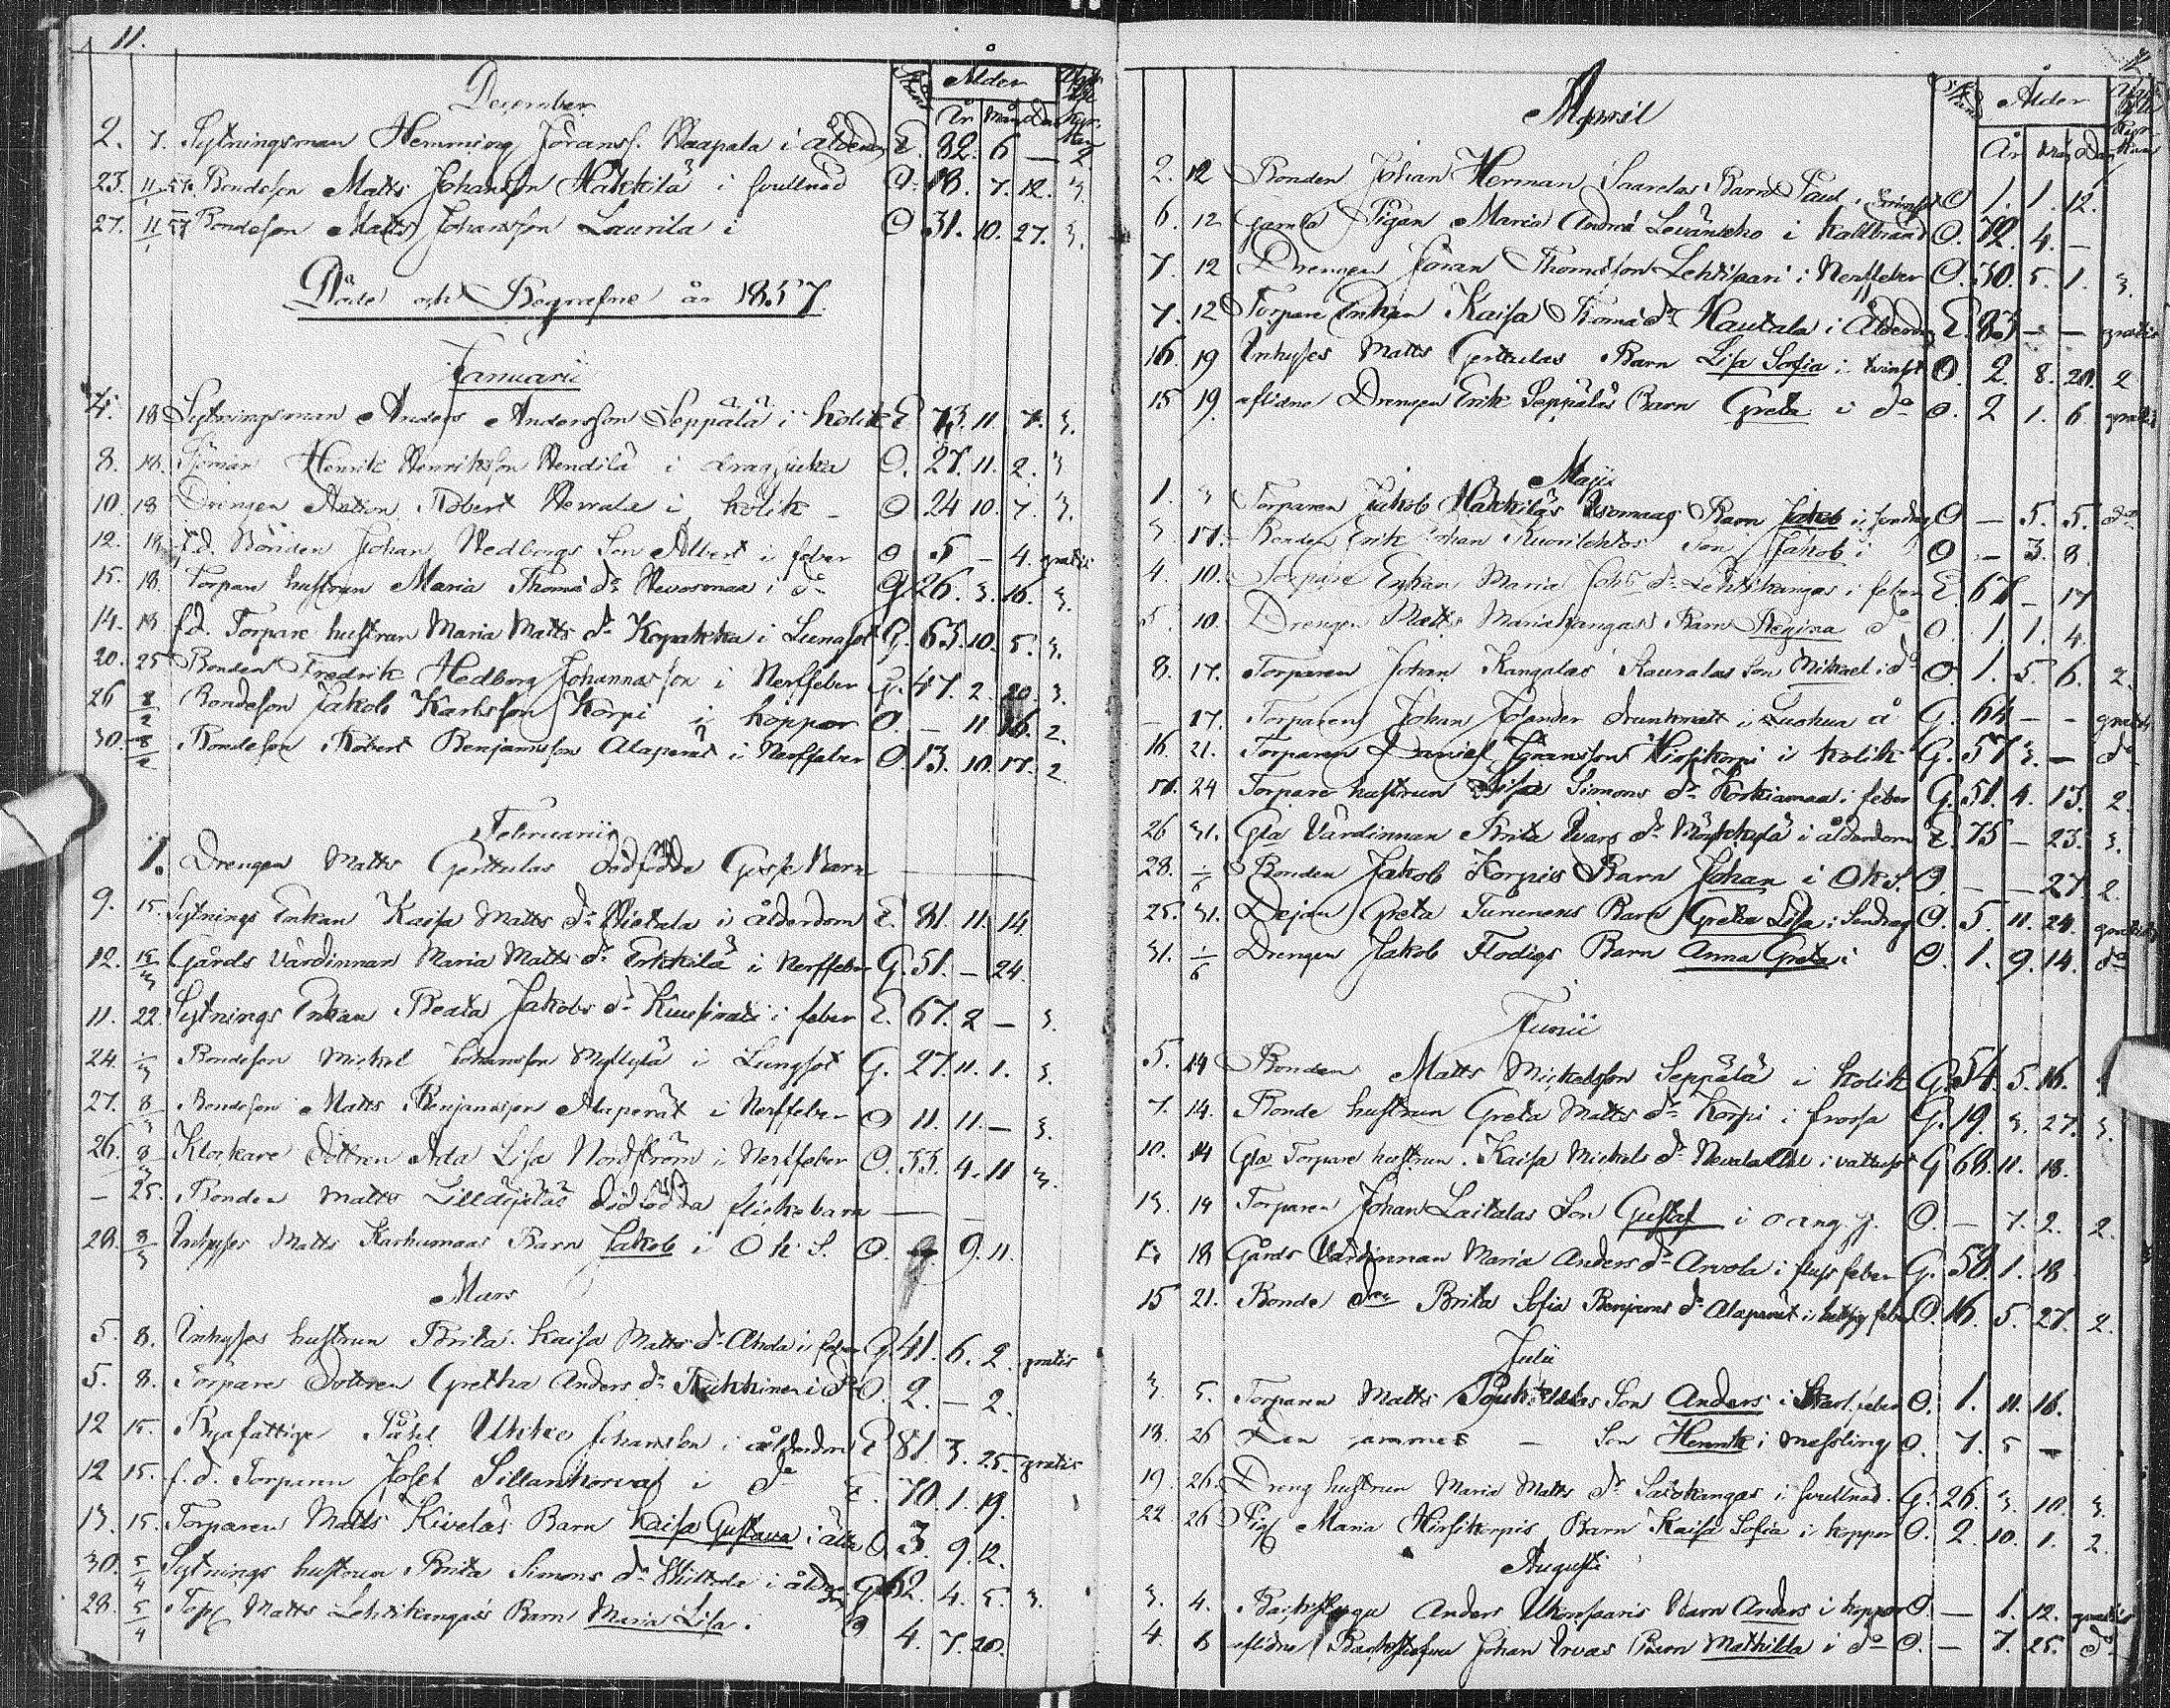 11.
December
Stånd Ålder
År Mån Dar
2. 7. Sytningsman Hemming Jöranss. Haapala i ålderdom E. 82. 6 — 2
23. 11/1 57. Bondeson Matts Johansson Häkkilä i svullnad O. 18. 7. 12. 3.
27. 11/1 57 Bondeson Matts Johansson Laurila i O 31. 10. 27. 3.
Döde och Begrafne år 1857.
Januarii
4. 18 Sytningsman Anders Andersson Seppälä i kolik E 73. 11. 7. 3.
8. 18. Henrik Henriksson i O. 27. 11. 2. 3
10. 18 Drengen Anton Robert i kolik — O 24 10. 7. 3.
12. 18 f.d. Bonden Johan Hedbergs Son Albert i feber O 5 — 4. gratis
15. 18. Torpare hustrun Maria Thomæ dr i do G 26. 3. 16. 3.
14. 18 fd. Torpare hustrun Maria Matts dr Kopakka i Lungsot G. 63. 10. 5. 3.
20. 25 Bonden Fredrik Hedborg Johannesson i Nerffeber G. 47. 2. 20. 3.
26 8/2 Bondeson Jakob Karlsson Korpi i koppor O. — 11 16. 2.
30. 8/2 Bondeson Robert Benjamsson Alaperät i Nerffeber O. 13. 10. 17. 2.
Februarii
1. Drengen Matts Gerttulas dödfödda Gosse Barn —
9. 15. Sytnings Enkan Kaisa Matts dr Hietala i ålderdom E. 81. 11. 14.
12. 15/3 Gårds värdinnan Maria Matts dr Erkkilä i Nerffeber G. 51. — 24.
11. 22. Sytnings Enkan Beata Jakobs dr i feber E. 67. 2 — 3.
24. 1/3 Bondeson Mickel Johansson Myllylä i Lungsot G. 27. 11. 1. 3.
27. 8/3 Bondeson Matts Benjamsson Alaperät i Nerffeber O 11. 11. — 3.
26. 8/3 Klockare dottren Ada Lisa Nordström i Nerffeber O. 33. 4. 11 3.
— 25. Bonden Matts dödfödda flickebarn —
28. 8/3 Inhyses Matts Karhumaas Barn Jakob i O k. S. O. 9. 11.
Mars
5. 8. Inhyses hustrun Brita Kaisa Matts dr Ahola i feber G. 41. 6. 2. gratis
5. 8. Torpares Dottren Gretha Anders dr i do O. 2. — 2.
12 15. Byafattige Påhl Ukko Johansson i ålderdom E 81. 3. 25. gratis
12 15. f.d. Torparen Josef Sillankorva i do E. 70. 1. 19.
13. 15. Torparen Matts Kiveläs Barn Kaisa Gustava i O. 3. 9. 12.
30. 5/4 Sytnings hustrun Brita Simons dr i ålderdom G 62. 4. 5. 3.
28. 5/4 Torp. Matts Lehtikangas Barn Maria Lisa. O 4. 7. 20.
April
Stånd Ålder
År Mån Dar
2. 12 Bonden Johan Herman Saarelas Barn Paul i O 1. 1. 12.
6. 12 Gamla Pigan Maria Andræ i kallbrand O. 72. 4. —
7. 12 Drengen Jöran Thomasson Lehtisaari i Nerffeber O. 30. 5. 1. 3.
7. 12 Torpare Enkan Kaisa Thomæ dr Hautala i Ålderdom E. 83 — — gratis
16. 19 Inhyses Matts Gerttulas Barn Lisa Sofia i tvinsot O. 2. 8. 20. 2
15 19. aflidne Drengen Erik Seppäläs Barn Greta i do O. 2 1. 6. gratis
Maji
1. 3 Torparen Jakob Häkkiläs Barn Jakob i O — 5. 5. do
3. 17. Bonden Erik Johan Son Jakob i O — 3. 8.
4. 10. Torpare Enkan Maria Johs dr Lehtikangas i feber E. 67 — 17
5. 10. Drengen Matts Mariakangas Barn Regina do O. 1. 1. 4.
8. 17. Torparen Johan Kangalas Son Mikael i do O. 1. 5. 6. 2.
— 17. Torparen Johan Jolander drunknat i Luohua å G. 64 — — gratis
16. 21. Torparen Daniel Göransson Hirsikorpi i kolik G. 57 3. — do
24 Torpare hustrun Lisa Simons dr Korkiamaa i feber G. 51. 4. 13. 2.
26 31. Gla Värdinnan Brita Ivars dr i ålderdom E. 75 — 23. 3.
28. 1/6 Bonden Jakob Korpis Barn Johan i O k S. O. — — 27. 2.
25. 31. Dejan Greta Turunens Barn Greta Lisa i O. 5. 11. 24. gratis
31. 1/6 Drengen Jakob Flodigs Barn Anna Greta i O. 1. 9. 14. do
Junii
5. 14 Bonden Matts Mickelsson Seppälä i kolik G. 54. 5. 16.
7. 14. Bonde hustrun Greta Matts dr Korpi i frossa G. 19. 3. 27. 3.
10. 14 Gla Torpare hustrun Kaisa Mickels dr i vattusot G 68. 11. 18.
13. 14 Torparen Johan Laitalas Son Gustaf i O. — 7. 2. 2.
13 18 Gårds Värdinnan Maria Anders dr Arvola i fluss feber G. 50. 1. 18
15 21. Bonde dren Brita Sofia Benjams dr Alaperät i hetsig feber O. 16. 5. 27. 2.
Julii
3. 5. Torparen Matts Son Anders i Skarl. feber O. 1. 11. 16.
18. 26 Den sammes — Son Henrik i messling O. 7. 5 —
19. 26. Dreng hustrun Maria Matts dr Savikangas i svullnad. G. 26. 3. 10. 3.
22 26 Pig. Maria Hirsikorpis Barn Kaisa Sofia i koppor O. 2. 10. 1. 2.
Augusti
3. 4. Anders Ukonsaaris Barn Anders i koppor O. — 1. 12. gratis
4. 6 aflidne Johan Barn Mathilda i do O. — 7. 25. do